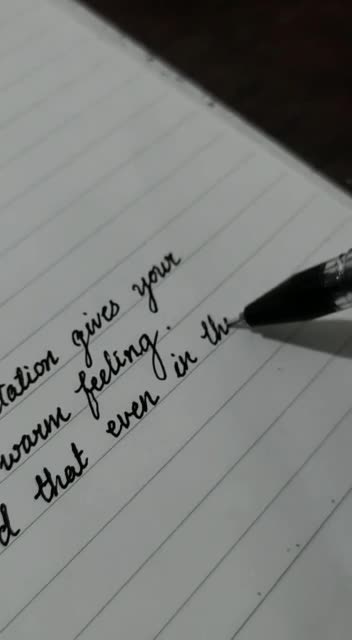 tation gives your
warm feeling.
d that even in the